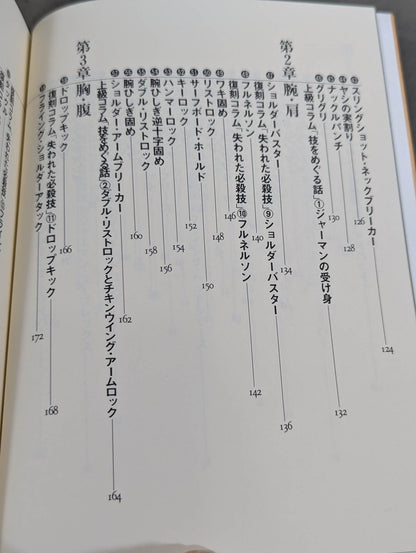 ㊸スリングショット・ネックブリーカー 124
㊹ヤシの実割り 126
㊺ナックルパンチ 128
㊻グリグリ 130
上級コラム「技をめぐる話」①シャーマンの受け身 132
第2章 腕・肩
㊼ショルダーバスター 134
復刻コラム「失われた必殺技」⑨ショルダーバスター 136
㊽フルネルソン 140
復刻コラム「失われた必殺技」⑩フルネルソン 142
㊾ワキ固め 146
㊿リストロック 148
51サーフボード・ホールド 150
52キーロック 152
53ハンマーロック 154
54腕ひしぎ逆十字固め 156
55ダブル・リストロック 158
56腕ひしぎ固め 160
57ショルダー・アームブリーカー 162
上級コラム「技をめぐる話」②ダブル・リストロックとチキンウイング・アームロック 164
第3章 胸・腹
58ドロップキック 166
復刻コラム「失われた必殺技」⑪ドロップキック 168
59フライング・ショルダーアタック 172